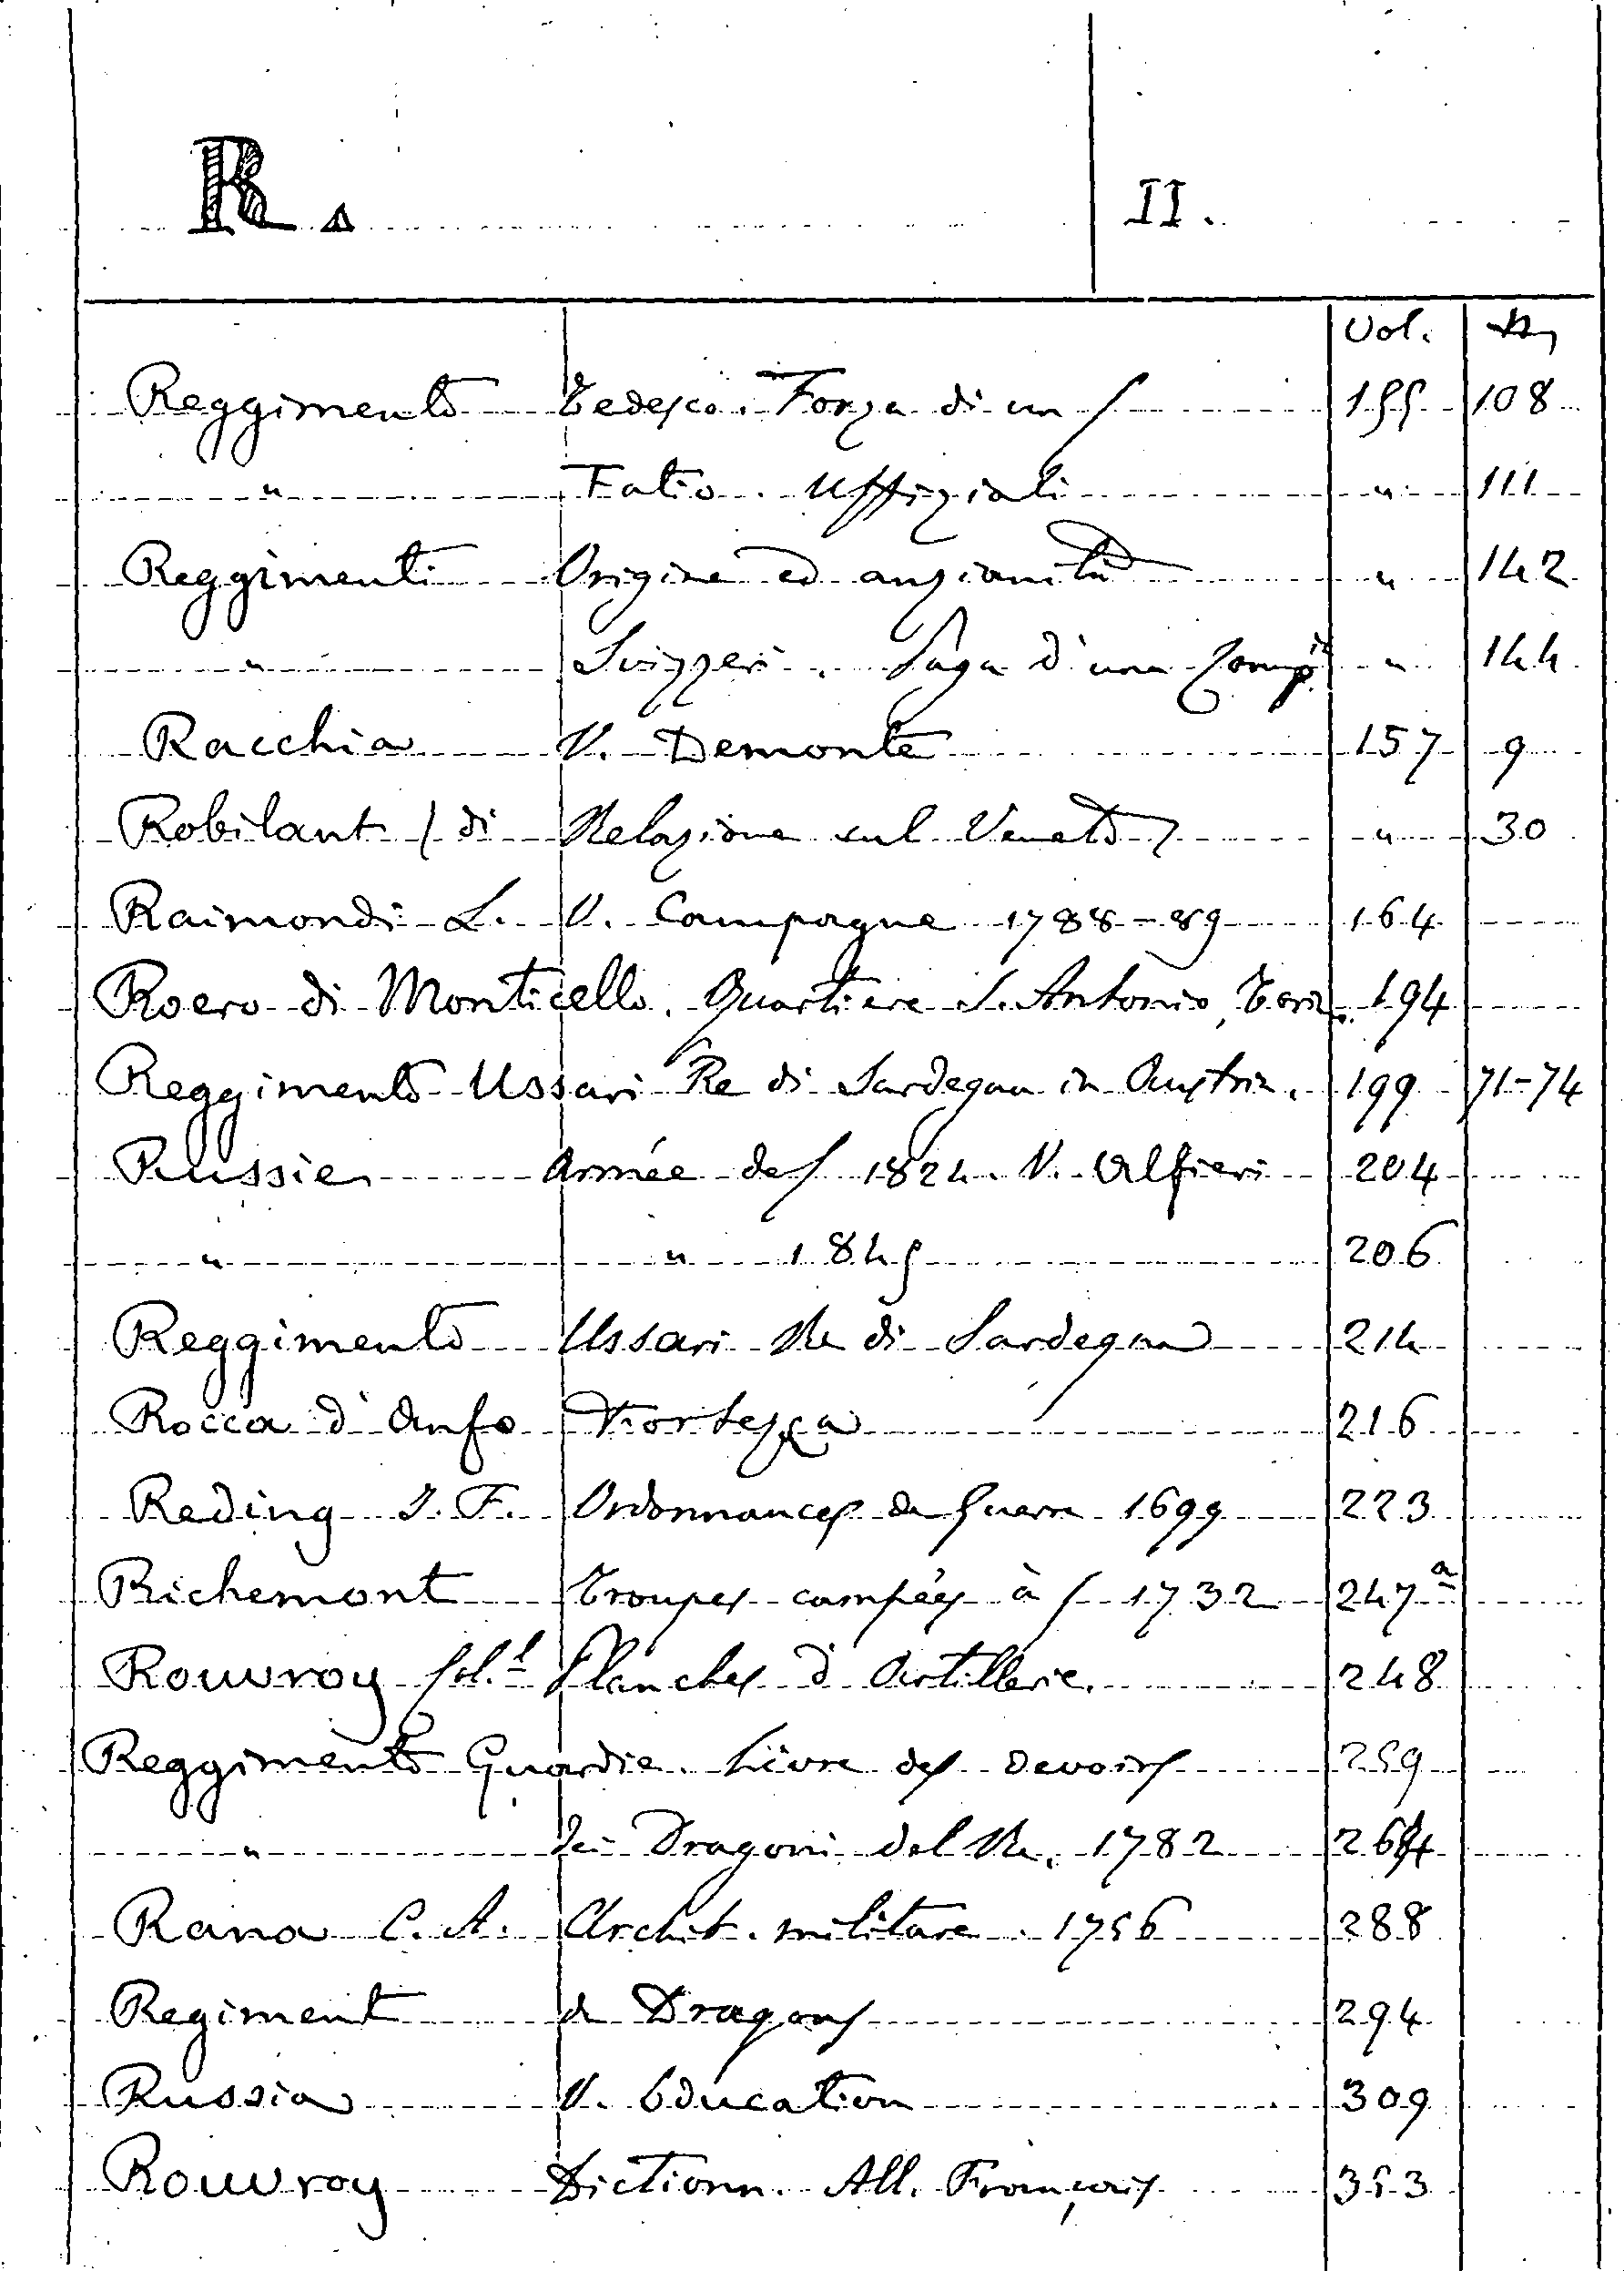 R. II.
Vol. N.
Reggimento Tedesco. Forza di un / 155 108
" Fatio. Uffiziali " 111
Reggimenti Origine ed anzianità " 142
" Svizzeri. Paga d'una Comp. " 144
Racchia V. Demonte 157 9
Robilant / di Relazione sul Veneto 7 " 30
Raimondi L. V. Campagne 1788-89 164
Roero di Monticello. Quartiere S. Antonio, Tori. 194
Reggimento Ussari Re di Sardegna in Austria. 199 71-74
Russie Armée de / 1824. V. Alfieri 204
" " 1845 206
Reggimento Ussari Re di Sardegna 214
Rocca d'Anfo Fortezza 216
Reding J. F. Ordonnances de Guerre 1699 223
Richemont Troupes campées à / 1732 247a
Rouvroy Col.l Planches d'Artillerie. 248
Reggimento Guardie. Livre des devoirs 259
" dei Dragoni del Re. 1782 264
Rana C. A. Archit. militare. 1756 288
Regiment de Dragons 294
Russia V. Education 309
Rouvroy Dictionn. All. Français 353